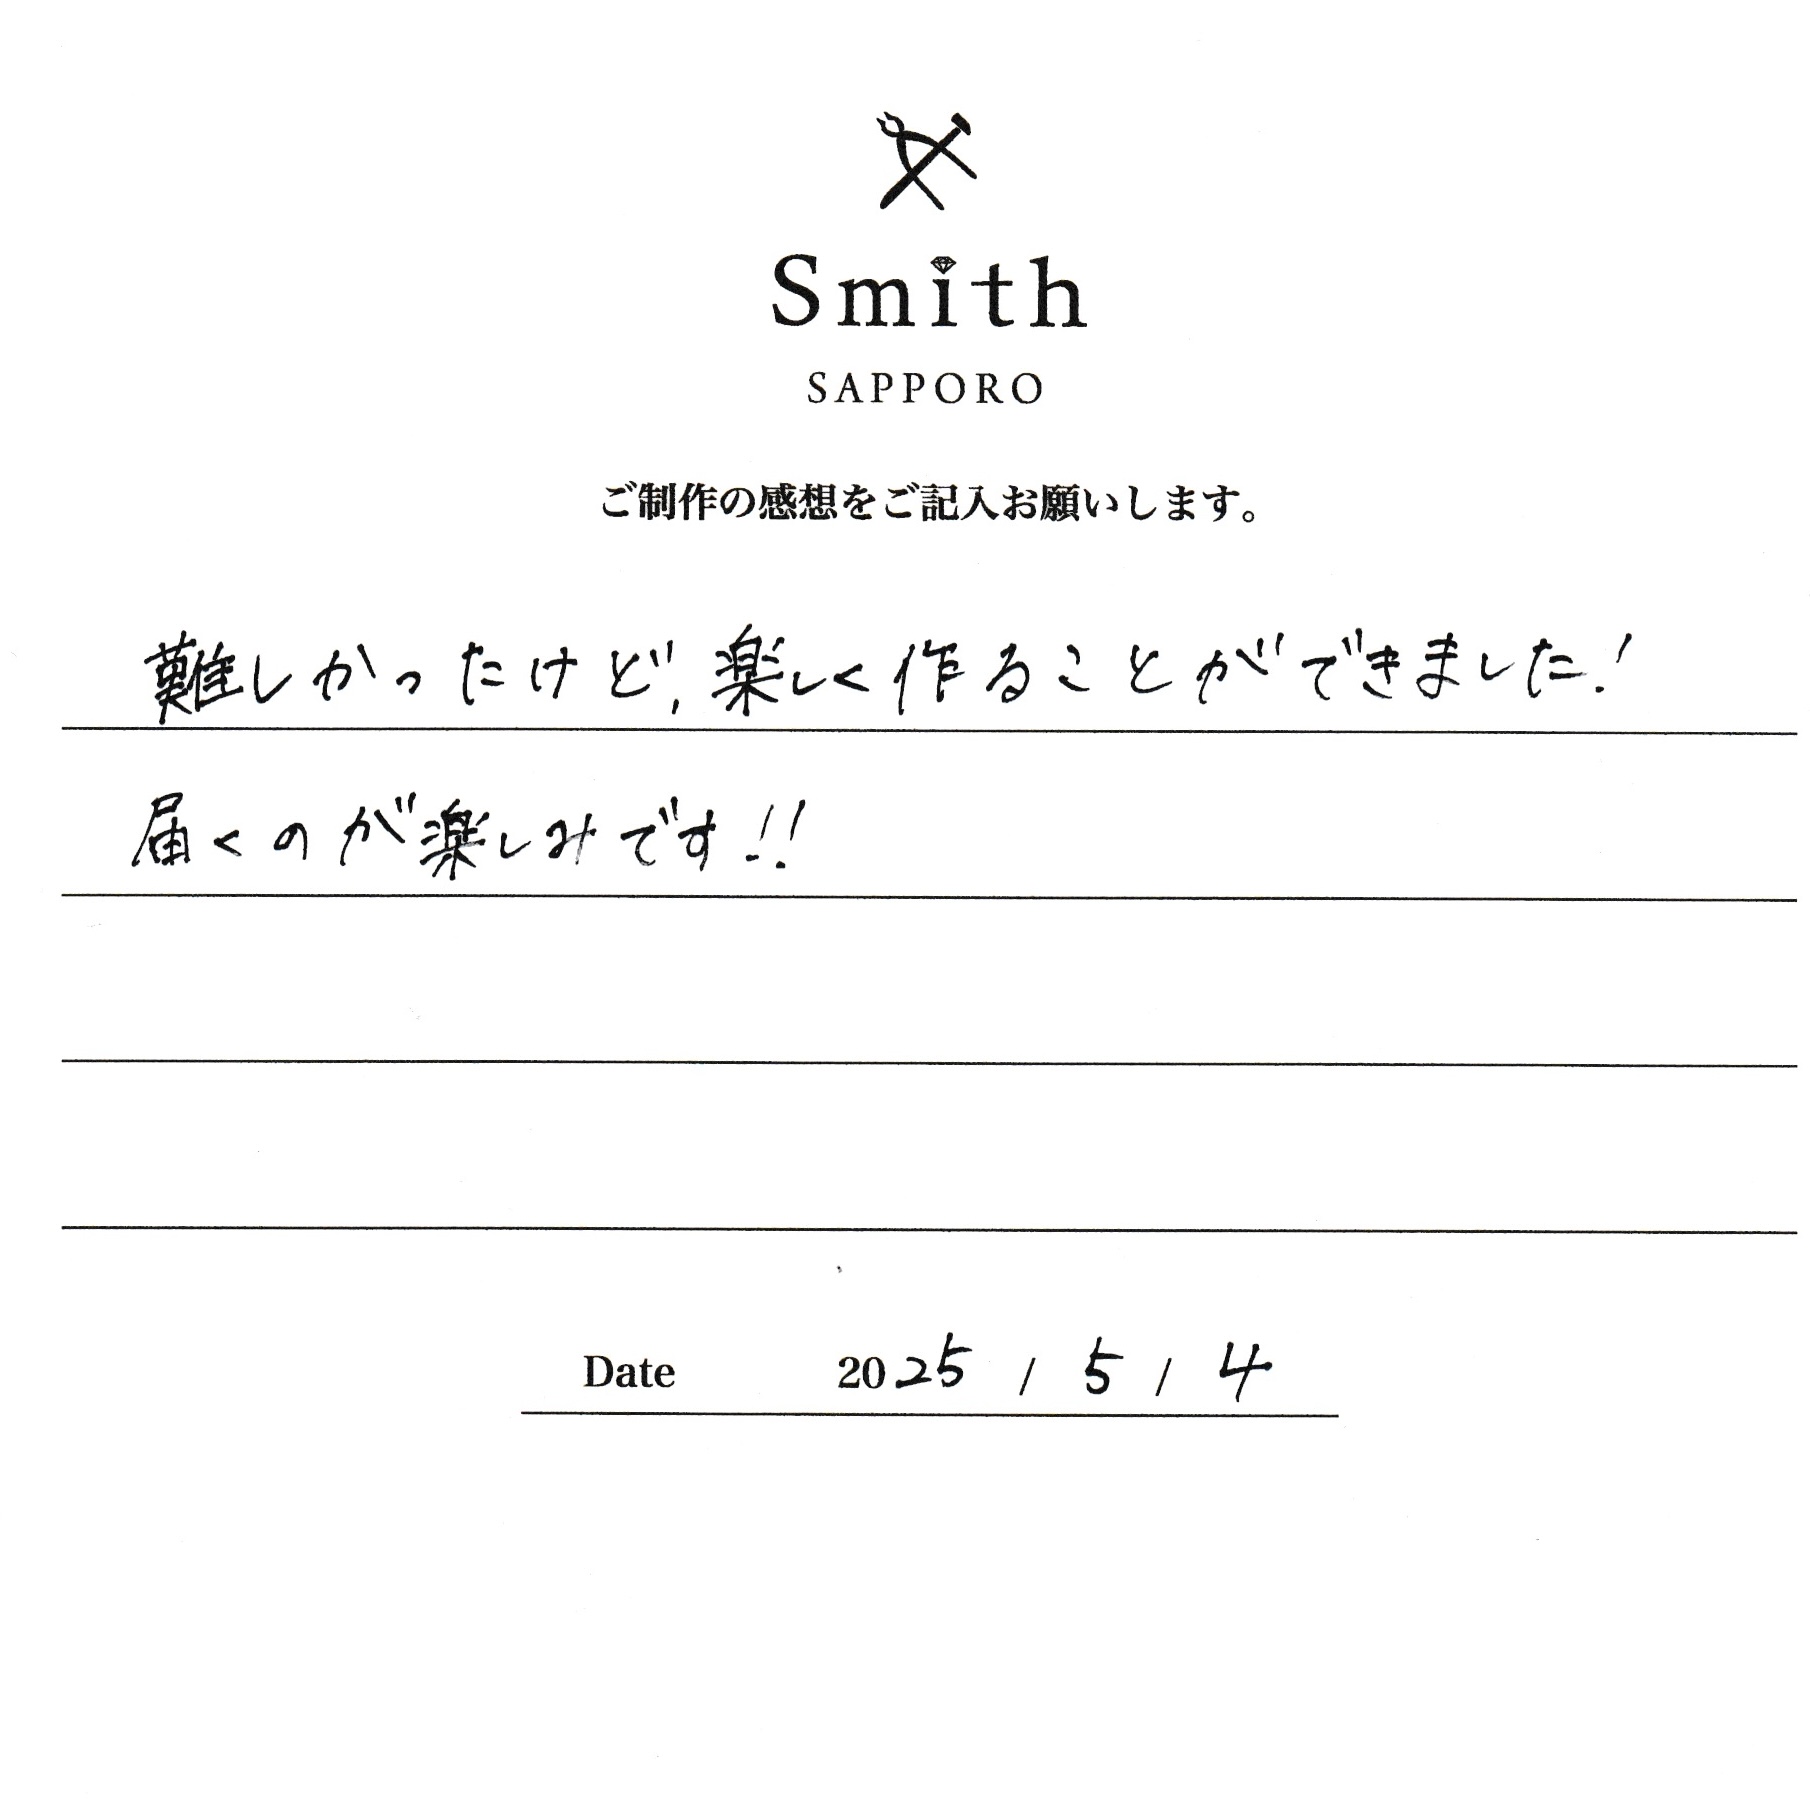 Smith
SAPPORO
ご制作の感想をご記入お願いします。
難しかったけど,楽しく作ることができました!
届くのが楽しみです!!
Date 2025 / 5 / 4